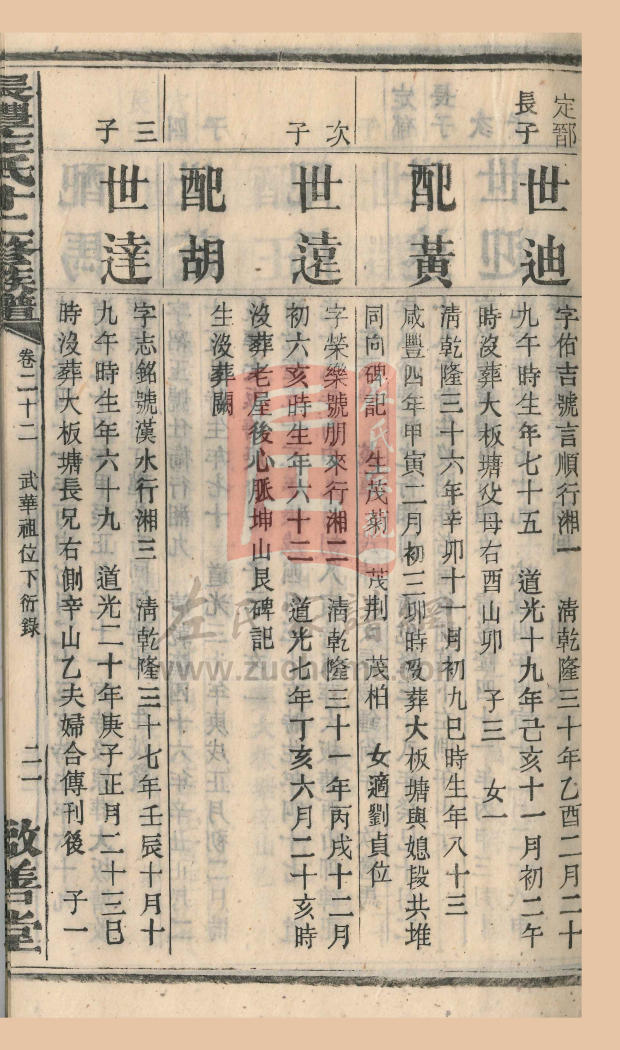 定郚
長子
世迪
字佑吉號言順行湘一 清乾隆三十年乙酉二月二十
九午時生年七十五 道光十九年己亥十一月初二午
時沒葬大板塘父母右酉山卯 子三 女一
配黃
清乾隆三十六年辛卯十一月初九巳時生年八十三
咸豐四年甲寅二月初三卯時歿葬大板塘與媳段共堆
同向碑記 生茂菊 茂荆 茂柏 女適劉貞位
次子
世遠
字榮樂號朋來行湘二 清乾隆三十一年丙戌十二月
初六亥時生年六十二 道光七年丁亥六月二十亥時
沒葬老屋後心脈坤山艮碑記
配胡
生沒葬闕
三子
世達
字志銘號漢水行湘三 清乾隆三十七年壬辰十月十
九午時生年六十九 道光二十年庚子正月二十三巳
時沒葬大板塘長兄右側辛山乙夫婦合傳刊後 子一
氏十二修族譜
卷二十二
武華祖位下衍錄
二一
啟善堂
左氏家譜網
www.zuohome.com